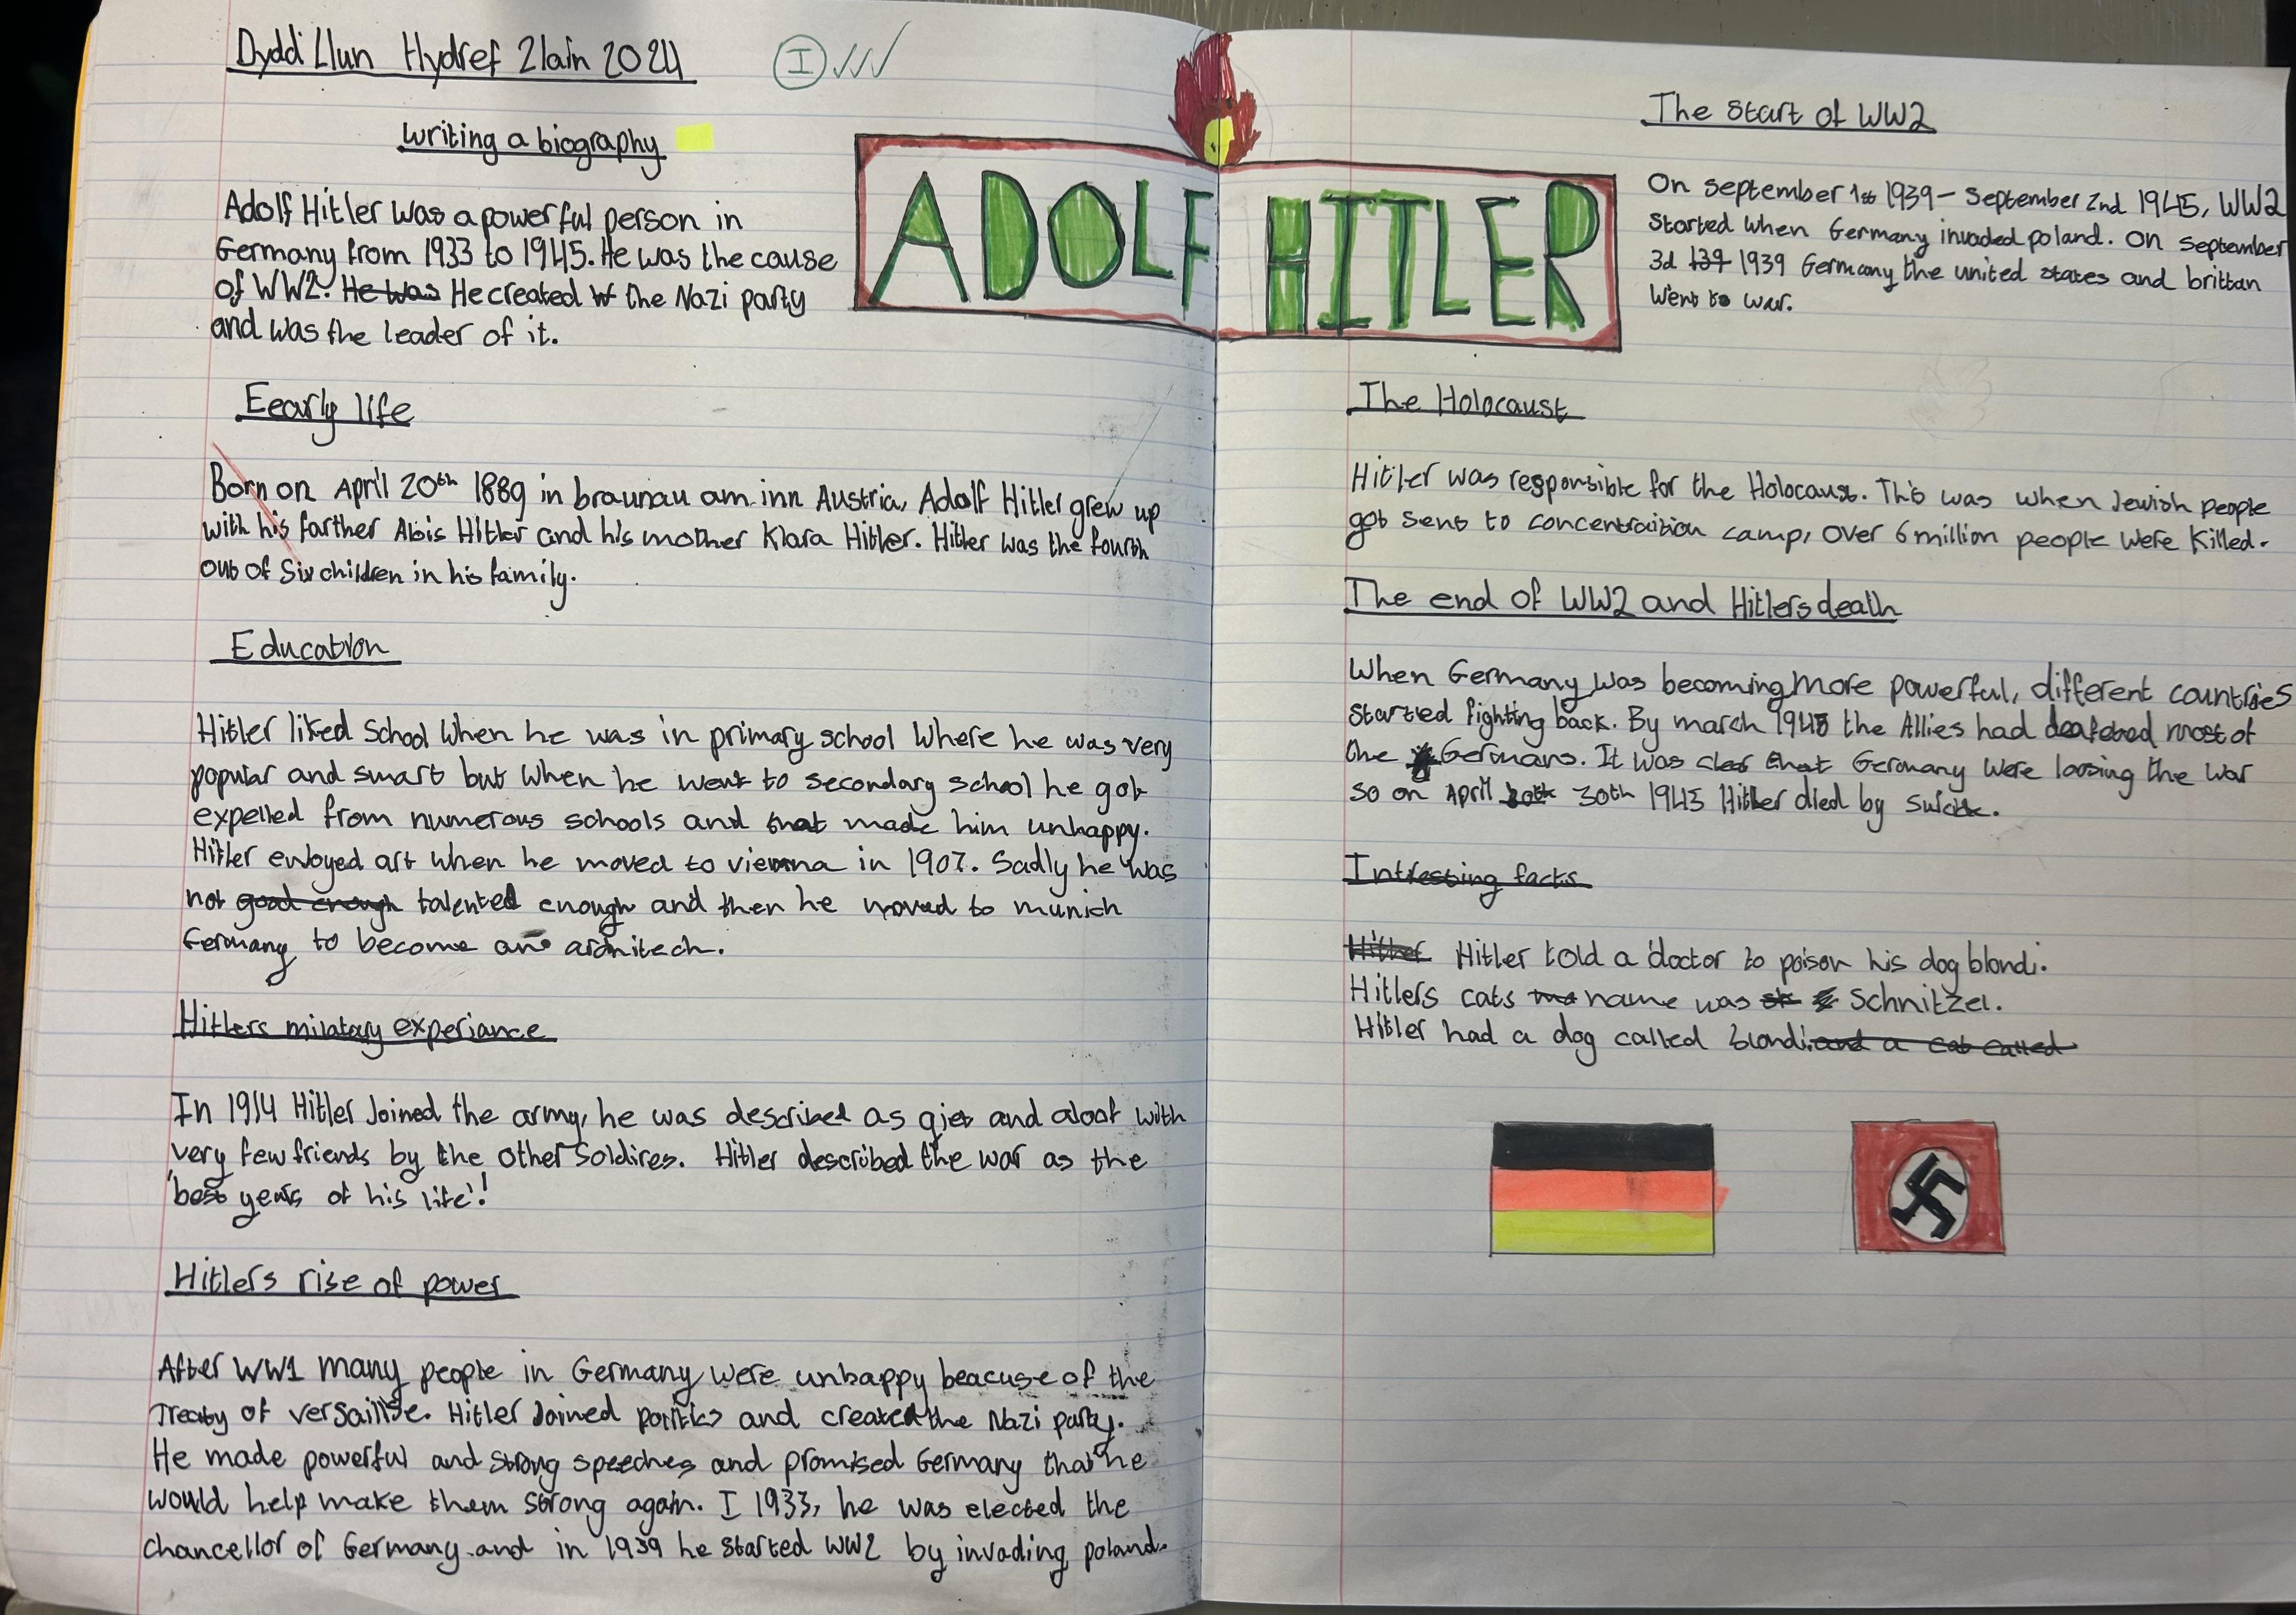 Dydd Llun Hydref 21ain 2024
I
writing a biography
Adolf Hitler was a powerful person in
Germany from 1933 to 1945. He was the cause
of WW2. He was He created the Nazi party
and was the leader of it.
Eearly life
Born on April 20th 1889 in braunau am inn Austria, Adolf Hitler grew up
with his farther Alois Hitler and his mother Klara Hitler. Hitler was the fourth
out of six children in his family.
Education
Hitler liked school when he was in primary school where he was very
popular and smart but when he went to secondary school he got
expelled from numerous schools and that made him unhappy.
Hitler enjoyed art when he moved to vienna in 1907. Sadly he was
not good enough talented enough and then he moved to munich
Germany to become an architech.
Hitlers milatary experiance
In 1914 Hitler Joined the army, he was described as qiet and aloof with
very few friends by the other soldires. Hitler described the war as the
'best years of his life'!
Hitlers rise of power
After WW1 many people in Germany were unhappy beacuse of the
Treaty of versaillse. Hitler Joined politics and created the Nazi party.
He made powerful and strong speeches and promised Germany that he
would help make them strong again. I 1933, he was elected the
chancellor of Germany and in 1939 he started WW2 by invading poland.
ADOLF HITLER
The start of WW2
On september 1st 1939 - September 2nd 1945, WW2
started when Germany invaded poland. On september
3d 139 1939 Germany the united states and brittan
went to war.
The Holocaust
Hitler was responsible for the Holocaust. This was when Jewish people
got sent to concentraition camp, over 6 million people were killed.
The end of WW2 and Hitlers death
When Germany was becoming more powerful, different countries
started fighting back. By march 1945 the Allies had deafeted most of
the Germans. It was clear that Germany were loosing the war
so on April 30th 1945 Hitler died by
Intresting facts
Hitler Hitler told a doctor to poison his dog blondi.
Hitlers cats name was Schnitzel.
Hitler had a dog called blondi and a cat called